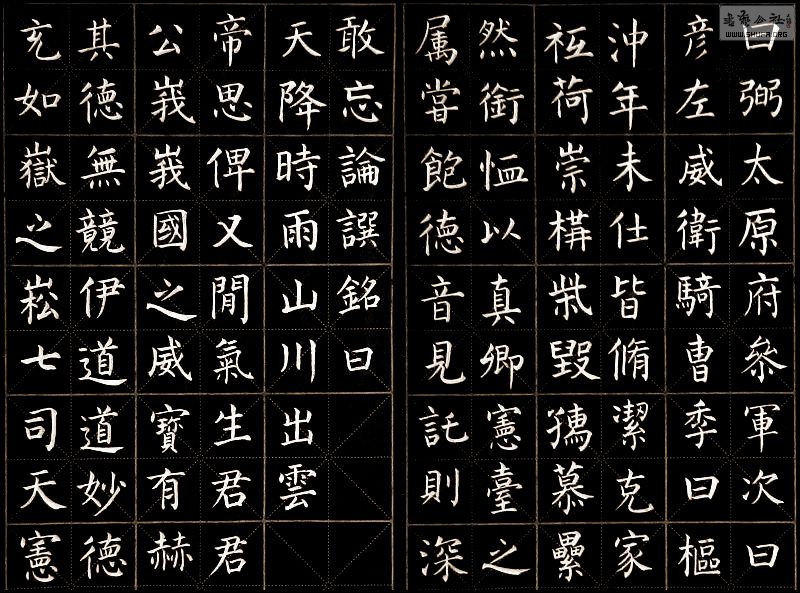 曰弼太原府叅軍次曰
彦左威衛騎曹季曰樞
沖年未仕皆脩潔克家
祗荷崇構柴毀孺慕纍
然銜恤以真卿憲臺之
属嘗飽德音見託則深
敢忘論譔銘曰
天降時雨山川出雲
帝思俾乂閒氣生君君
公峩峩國之威寶有赫
其德無競伊道道妙德
玄如嶽之崧七司天憲
WWW.SHUFA.ORG